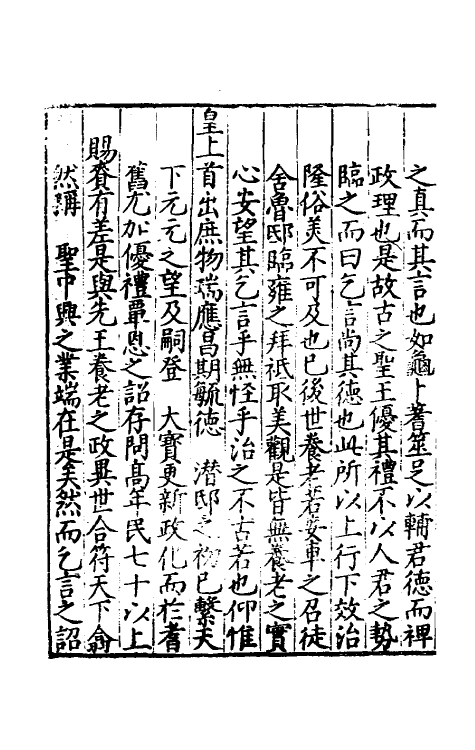 之真而其言也如龜卜蓍筮足以輔君德而裨
政理也是故古之聖王優其禮不以人君之勢
臨之而曰乞言尚其德也此所以上行下效治
隆俗美不可及也已後世養老若安車之召徒
舍魯邸臨雍之拜祗取美觀是皆無養老之實
心安望其乞言乎無怪乎治之不古若也仰惟
皇上首出庶物瑞應昌期毓德 潛邸之初已繫天
下元元之望及嗣登 大寶更新政化而於耆
舊尤加優禮覃恩之詔存問高年民七十以上
賜賚有差是與先王養老之政異世合符天下翕
然稱 聖中興之業端在是矣然而乞言之詔